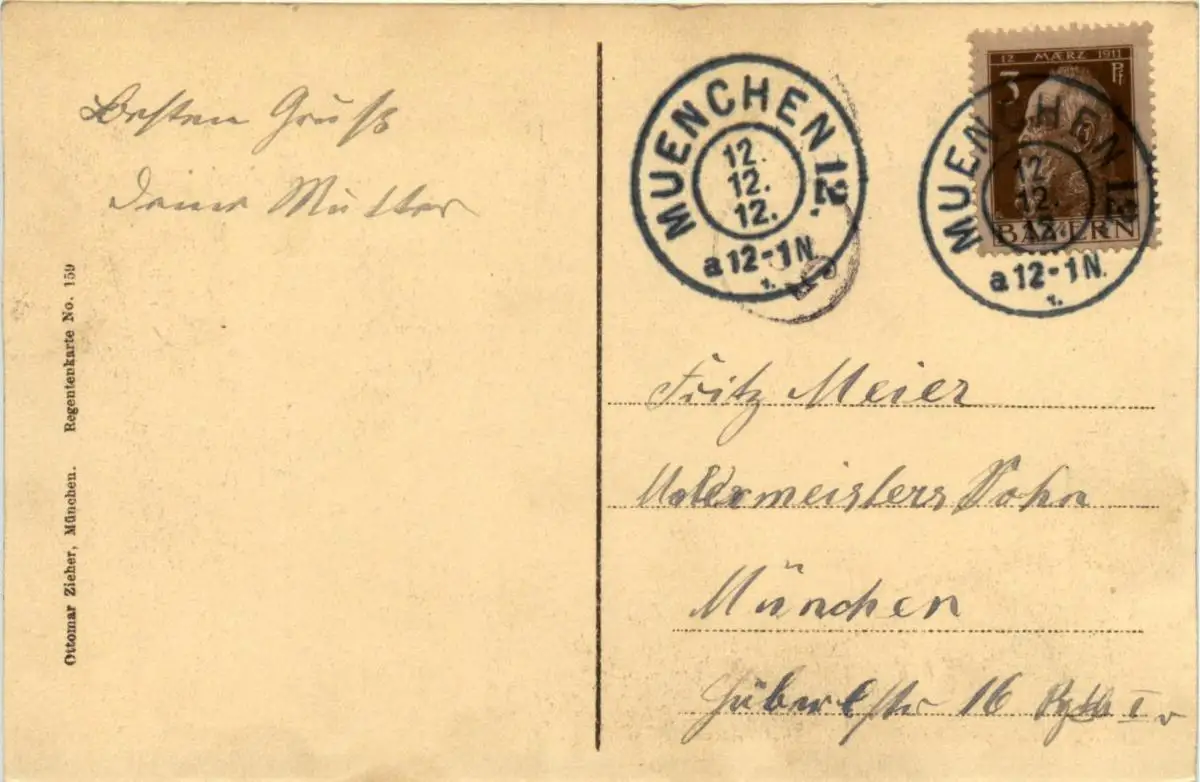 Besten Gruß
Deine Mutter
Ottomar Zieher, München. Regentenkarte No. 159
MUENCHEN 12.
12.
12.
12.
a 12-1 N.
12 MÆRZ 1911
3 Pf
BAYERN
MUENCHEN 12
12.
12.
12.
a 12-1 N.
Fritz Meier
Malermeisters Sohn
München
16 I